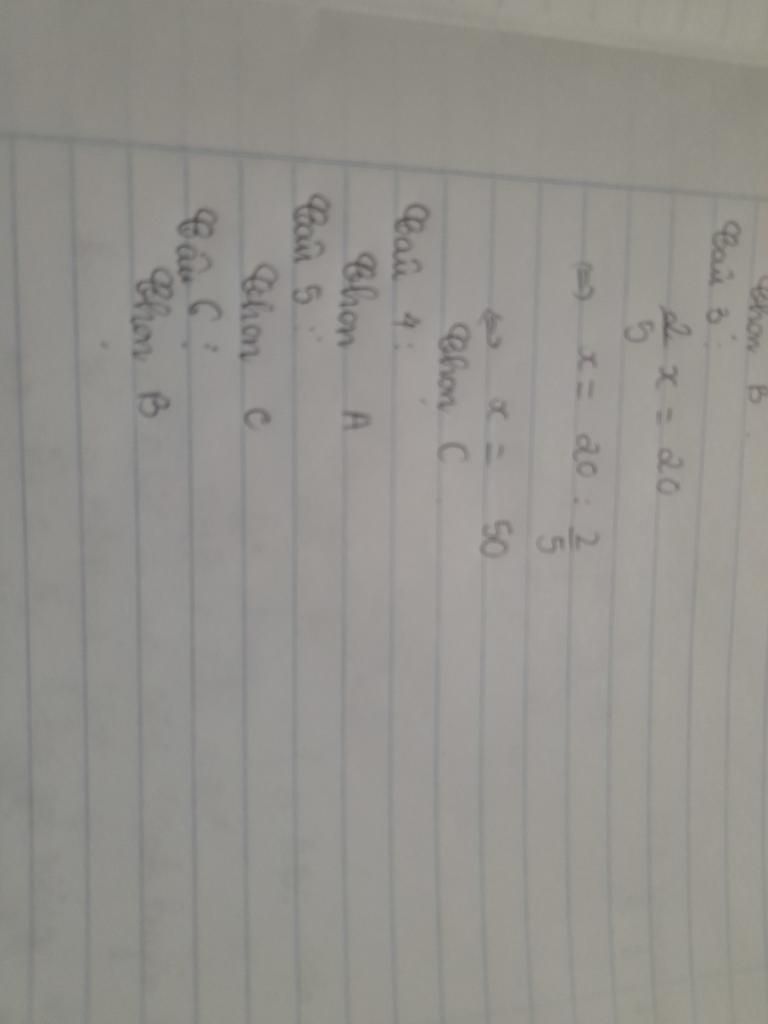 Chọn B.
Câu 3:
2/5 x = 20
⇔ x = 20 : 2/5
⇔ x = 50
Chọn C
Câu 4:
Chọn A
Câu 5:
Chọn C
Câu 6:
Chọn B